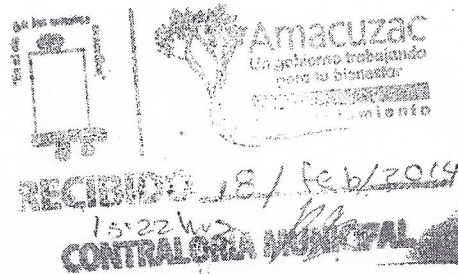 Amacuzac
Un gobierno trabajando
para tu bienestar
RECIBIDO 18/feb/2014
15:22 hrs
CONTRALORÍA MUNICIPAL